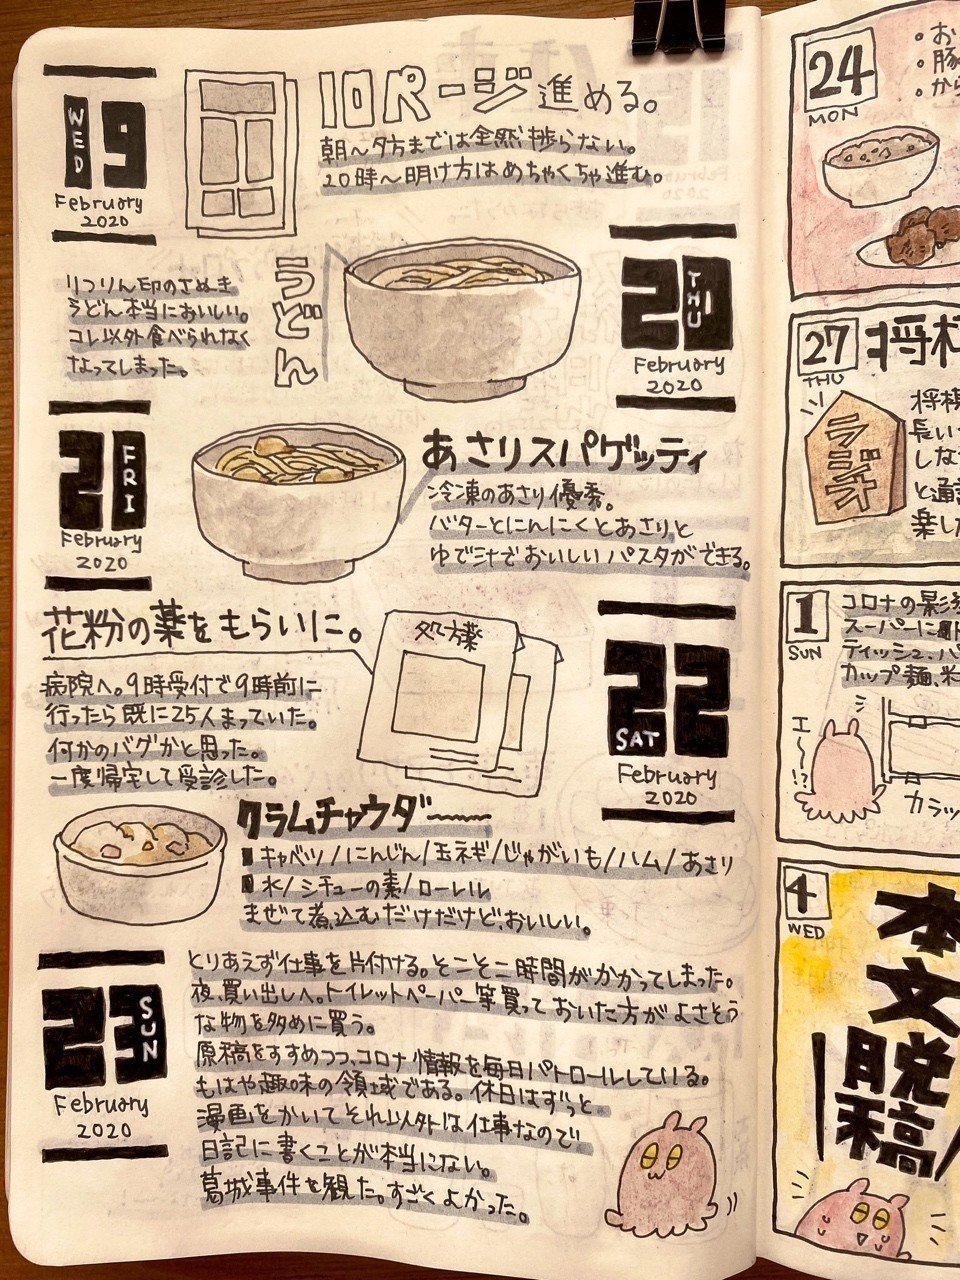 WED
19
February
2020
10ページ進める。
朝〜夕方までは全然捗らない。
20時〜明け方はめちゃくちゃ進む。
うどん
りつりん印のさぬき
うどん本当においしい。
コレ以外食べられなく
なってしまった。
20
THU
February
2020
21
FRI
February
2020
あさりスパゲッティ
冷凍のあさり優秀。
バターとにんにくとあさりと
ゆで汁でおいしいパスタができる。
花粉の薬をもらいに。
処方薬
病院へ。9時受付で9時前に
行ったら既に25人まっていた。
何かのバグかと思った。
一度帰宅して受診した。
22
SAT
February
2020
クラムチャウダー
キャベツ/にんじん/玉ネギ/じゃがいも/ハム/あさり
水/シチューの素/ローレル
まぜて煮込むだけだけど、おいしい。
23
SUN
February
2020
とりあえず仕事を片付ける。そこそこ時間がかかってしまった。
夜、買い出しへ。トイレットペーパー等買っておいた方がよさそう
な物を多めに買う。
原稿をすすめつつ、コロナ情報を毎日パトロールしている。
もはや趣味の領域である。休日はずっと
漫画をかいてそれ以外は仕事なので
日記に書くことが本当にない。
葛城事件を観た。すごくよかった。
24
MON
・お
・豚
・から
27
THU
将棋
ラジオ
将棋
長い
しな
と通
楽した
1
SUN
コロナの影
スーパーに
ティッシュ、
カップ麺、米
エ〜!?
カラッ
4
WED
本文
脱稿